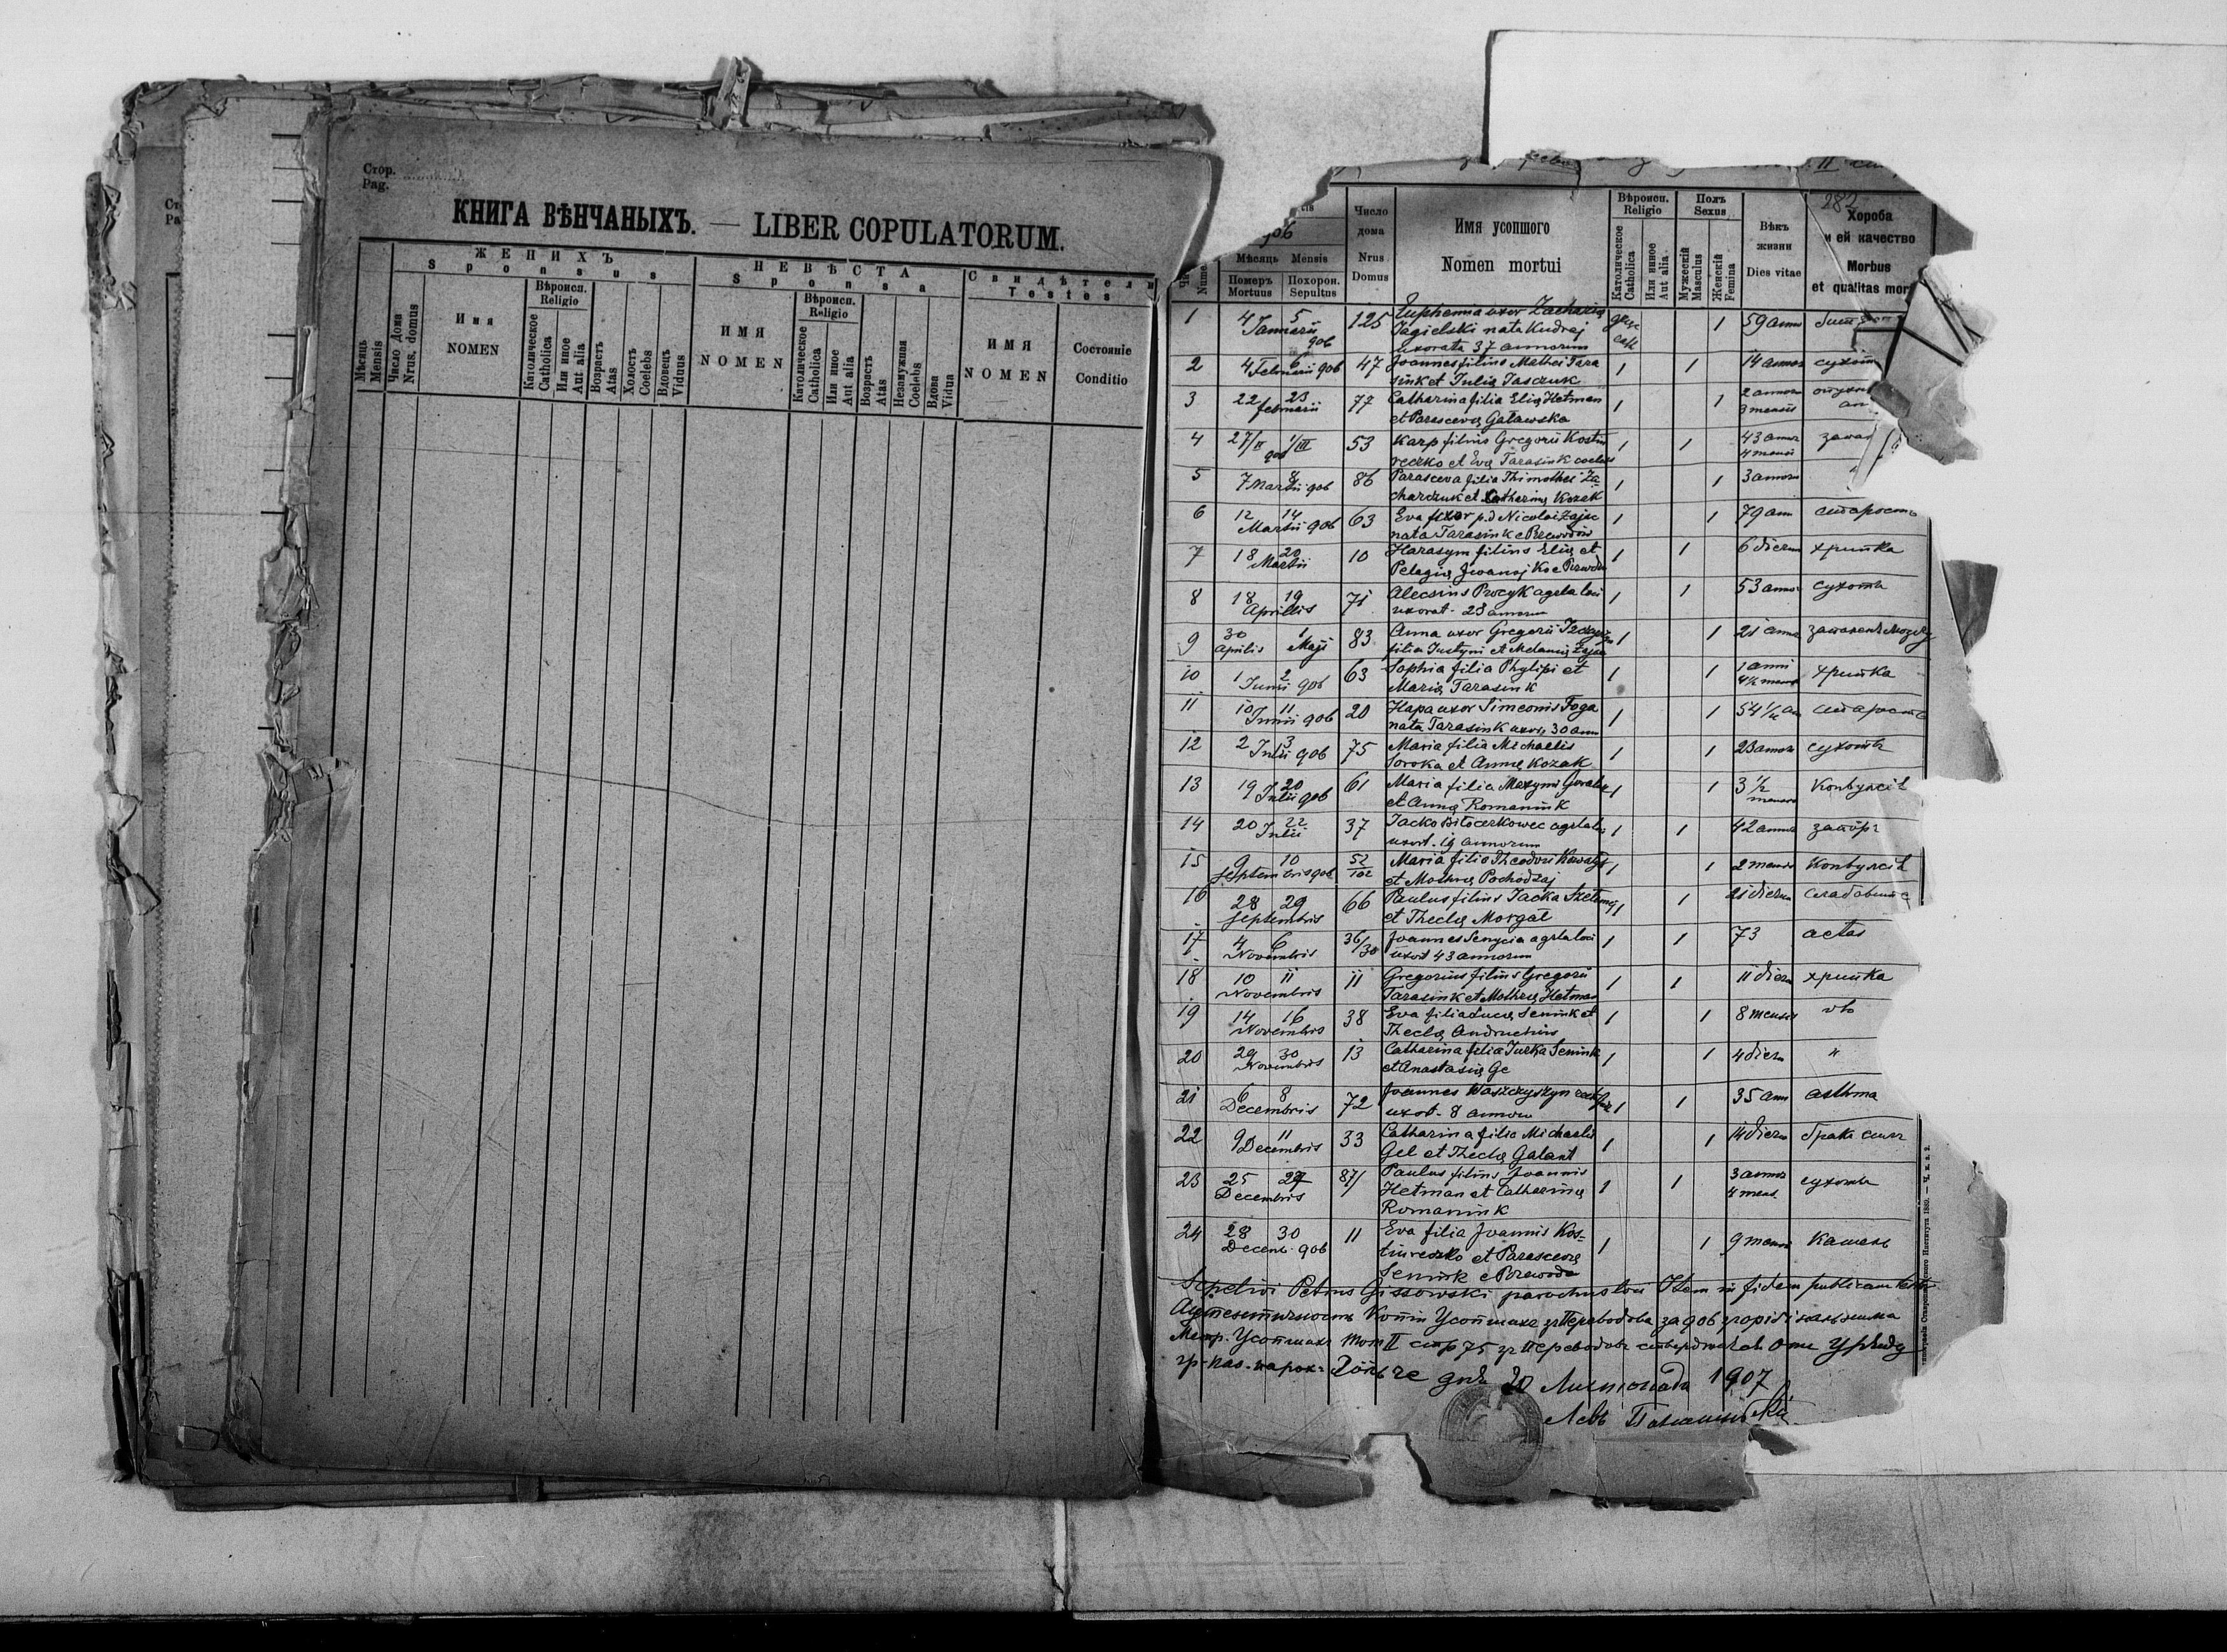 Стор.
Pag.
КНИГА ВѢНЧАНЫХЪ. — LIBER COPULATORUM.
Мѣсяць
Mensis
Число Дома
Nrus, domus
ЖЕНИХЪ
Sponsus
Имя
NOMEN
Вѣроисп.
Religio
Католическое
Catholica
Или иное
Aut alia
Возрастъ
Atas
Холостъ
Coelebs
Вдовецъ
Viduus
НЕВѢСТА
Sponsa
ИМЯ
NOMEN
Вѣроисп.
Religio
Католическое
Catholica
Или иное
Aut alia
Возрастъ
Atas
Незамужная
Coelebs
Вдова
Vidua
Свидѣтели
Testes
ИМЯ
NOMEN
Состояніе
Conditio
282
906
Мѣсяць Mensis
Померъ
Mortuus
Похорон.
Sepultus
Число
дома
Nrus
Domus
Имя усопшого
Nomen mortui
Вѣроисп.
Religio
Католическое
Catholica
Или иное
Aut alia
Полъ
Sexus
Мужескій
Masculus
Женскій
Femina
Вѣкъ
жизни
Dies vitae
Хороба
и ей качество
Morbus
et qualitas mor
1 4 5 Januarii 906 125 Euphemia uxor Zacharię
Jagielski nata Kudraj
uxorata 37 annorum 1 59 anno
2 4 6 Februarii 906 47 Joannes filius Mathei Tara
siuk et Julię Jasczuk 1 1 14 annor
3 22 23 februarii 77 Catharina filia Elię Hetman
et Parascevę Galawska 1 1 2 annor
3 mensis
4 27/II 1/III 906 53 Karp filius Gregorii Kostiu
reczko et Evę Tarasiuk coelebs 1 1 43 annor
4 mensis
5 7 8 Martii 906 86 Parasceva filia Thimothei Za
charczuk et Catharinę Kozak 1 1 3 annor
6 12 14 Martii 906 63 Eva uxor p.d Nicolai Zajac
nata Tarasiuk e Perewodiw 1 1 79 ann старость
7 18 20 Martii 10 Harasym filius Elię et
Pelagię Iwanojko e Perewodiw 1 1 6 dierum хрипка
8 18 19 Aprilis 71 Alecsius Procyk agrla loci
uxorat. 28 annorum 1 1 53 annor сухоты
9 30 Aprilis 1 Maji 83 Anna uxor Gregorii
filia Justyni et Melanię Zajac 1 1 21 anno
10 1 2 Junii 906 63 Sophia filia Phylipi et
Marię Tarasiuk 1 1 1 anni
4½ mens хрипка
11 10 11 Junii 906 20 Hapa uxor Simeonis Foga
nata Tarasiuk uxor. 30 ann 1 1 54½ an старость
12 2 3 Julii 906 75 Maria filia Michaelis
Soroka et Annę Kozak 1 1 23 annor сухоты
13 19 20 Julii 906 61 Maria filia Maxymi
et Annę Romaniuk 1 1 3½
mensis конвулсіѣ
14 20 22 Julii 37 Jacko Bilocerkowec agrla loci
uxort. 19 annorum 1 1 42 annor
15 9 10 Septembris 906 52/102 Maria filia Theodori
et Mothrę Pochodzaj 1 1 2 mensis конвулсіѣ
16 28 29 Septembris 66 Paulus filius Jacka
et Theclę Morgat 1 1 21 dierum
17 4 6 Novembris 36/30 Joannes Senycia agrla loci
uxort 43 annorum 1 1 73 aetas
18 10 11 Novembris 11 Gregorius filius Gregorii
Tarasiuk et Mothrę Hetman 1 1 11 dierum хрипка
19 14 16 Novembris 38 Eva filia Lucę Seniuk et
Theclę Andruchiw 1 1 8 mensis
20 29 30 Novembris 13 Catharina filia Jurka Seniuk
et Anastasię Ge 1 1 4 dierum "
21 6 8 Decembris 72 Joannes Waszczyszyn
uxort. 8 annorum 1 1 35 ann asthma
22 9 11 Decembris 33 Catharina filia Michaelis
Gel et Theclę Galant 1 1 14 dierum бракъ силъ
23 25 27 Decembris 87/ Paulus filius Joannis
Hetman et Catharinę
Romaniuk 1 1 3 annor
4 mens. сухоты
24 28 30 Decemb. 906 11 Eva filia Joannis Kos=
tiureczko et Parascevę
Seniuk e Perewodo 1 1 9 mensis кашель
Sepelivi Petrus Gissowski parochus loci Item in fidem publicam testor
Аутентичность копіи Усопшихъ зъ Переводова за 906 зъ оригінальными
Метр. Усопшихъ Том II стр 75 зъ Переводовъ стверджаю Отъ Уряду
гр-кат. парох. дня 20 Листопада 1907